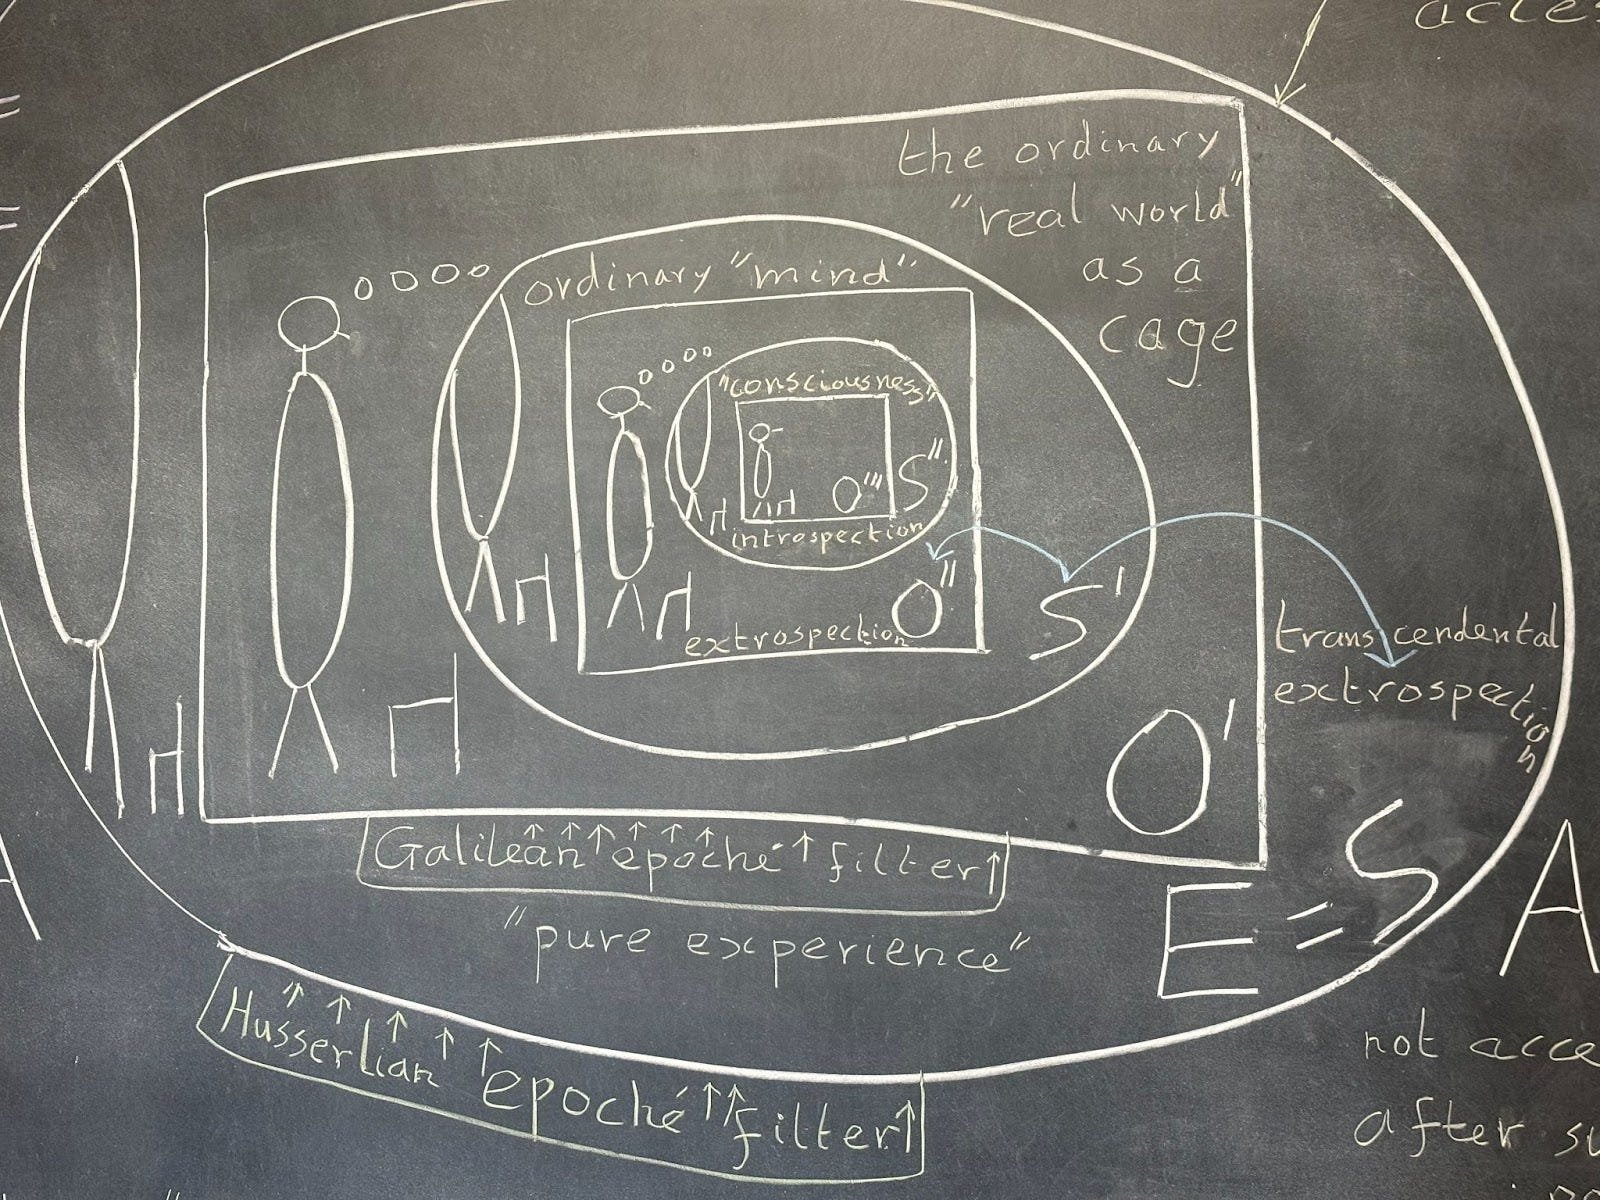 the ordinary
"real world"
as a
cage
ordinary "mind"
"consciousness"
O'''
S''
introspection
O''
extrospection
S'
transcendental
extrospection
O'
Galilean epoché filter
"pure experience"
E = S
A
Husserlian epoché filter
not
after